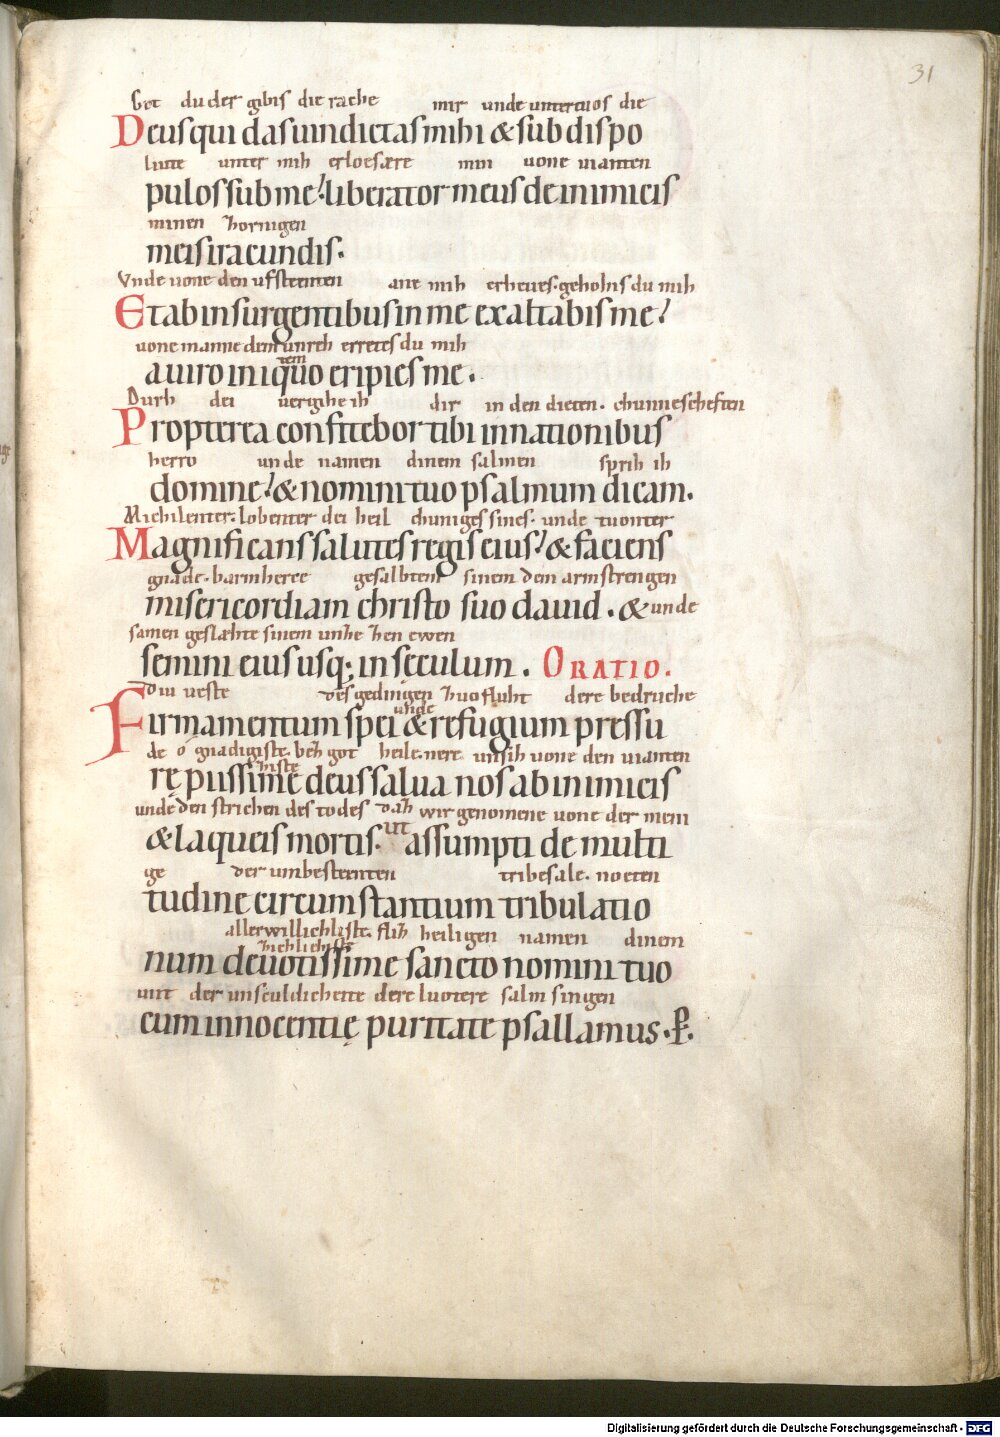 31
Got du der gibis die rache mir unde untertuos die
Deus qui das uindictas mihi & subdis po
liute unter mih erloesære min uone uianten
pulos sub me! liberator meus de inimicis
minen zornigen
meis iracundis.
Vnde uone den ufstenten ane mih erheues. gehohis du mih
Et ab insurgentibus in me exaltabis me!
uone manne dem unreh erretes du mih
tem
a uiro iniquo eripies me.
Durh dei uergihe ih dir in den dieten. chunnescheften
Propterea confitebor tibi in nationibus
herro unde namen dinem salmen sprih ih
domine! & nomini tuo psalmum dicam.
Michilenter. lobenter dei heil chuniges sines. unde tuonter
Magnificans salutes regis eius! & faciens
gnade. barmherce gesalbtem sinem dem armstrengen
misericordiam christo suo dauid. & unde
samen geslæhte sinem unze hen ewen
semini eius usq; in seculum. ORATIO.
diu ueste des gedingen zuofluht dere bedruche
unde
Firmamentum spei & refugium pressu
de o gnadigiste. bezh got heile. nere unsih uone den uianten
ziste
rę piissime deus salua nos ab inimicis
unde den strichen des todes daz wir genomene uone der meni
& laqueis mortis. ut assumpti de multi
ge der umbestenten tribesale. noeten
tudine circumstantium tribulatio
allerwillichliste. fliz heiligen namen dinem
zichlichste
num deuotissime sancto nomini tuo
mit der unsculdichette dere luotere salm singen
cum innocentię puritate psallamus. P.
Digitalisierung gefördert durch die Deutsche Forschungsgemeinschaft - DFG